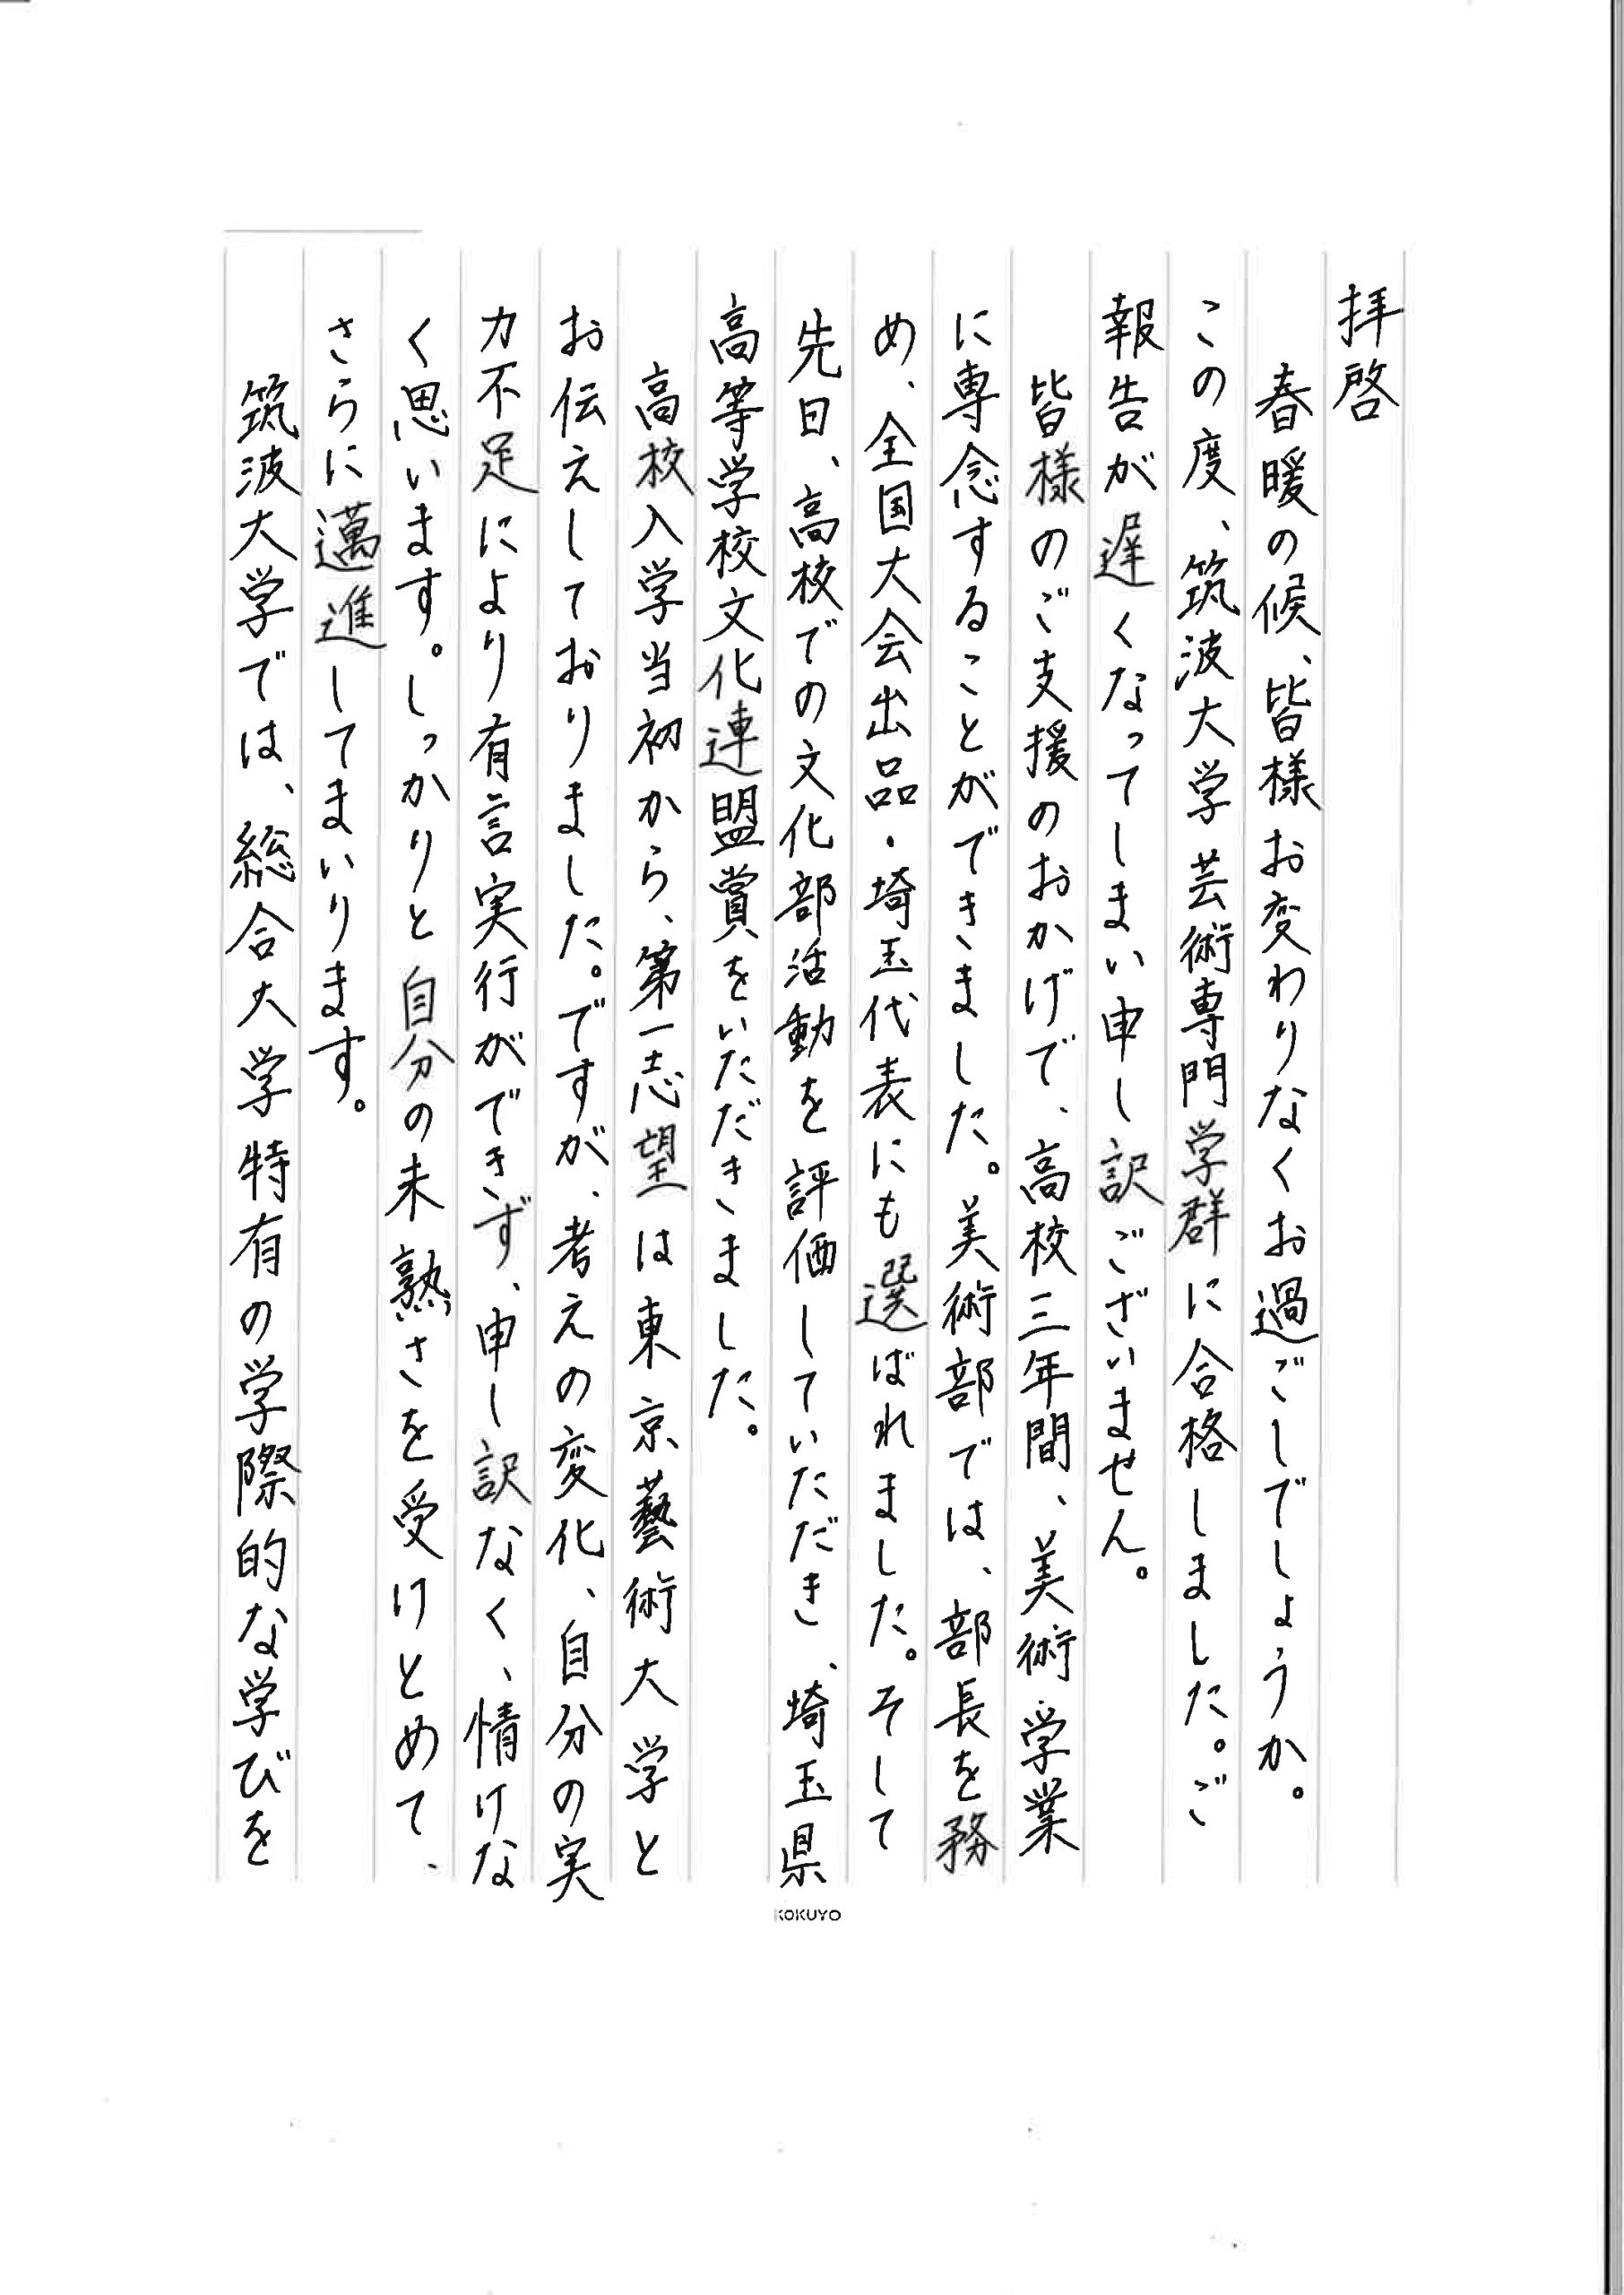 拝啓
春暖の候、皆様お変わりなくお過ごしでしょうか。
この度、筑波大学芸術専門学群に合格しました。ご
報告が遅くなってしまい申し訳ございません。
皆様のご支援のおかげで、高校三年間、美術・学業
に専念することができました。美術部では、部長を務
め、全国大会出品・埼玉代表にも選ばれました。そして
先日、高校での文化部活動を評価していただき、埼玉県
高等学校文化連盟賞をいただきました。
高校入学当初から、第一志望は東京藝術大学と
お伝えしておりました。ですが、考えの変化、自分の実
力不足により有言実行ができず、申し訳なく、情けな
く思います。しっかりと自分の未熟さを受けとめて、
さらに邁進してまいります。
筑波大学では、総合大学特有の学際的な学びを
KOKUYO